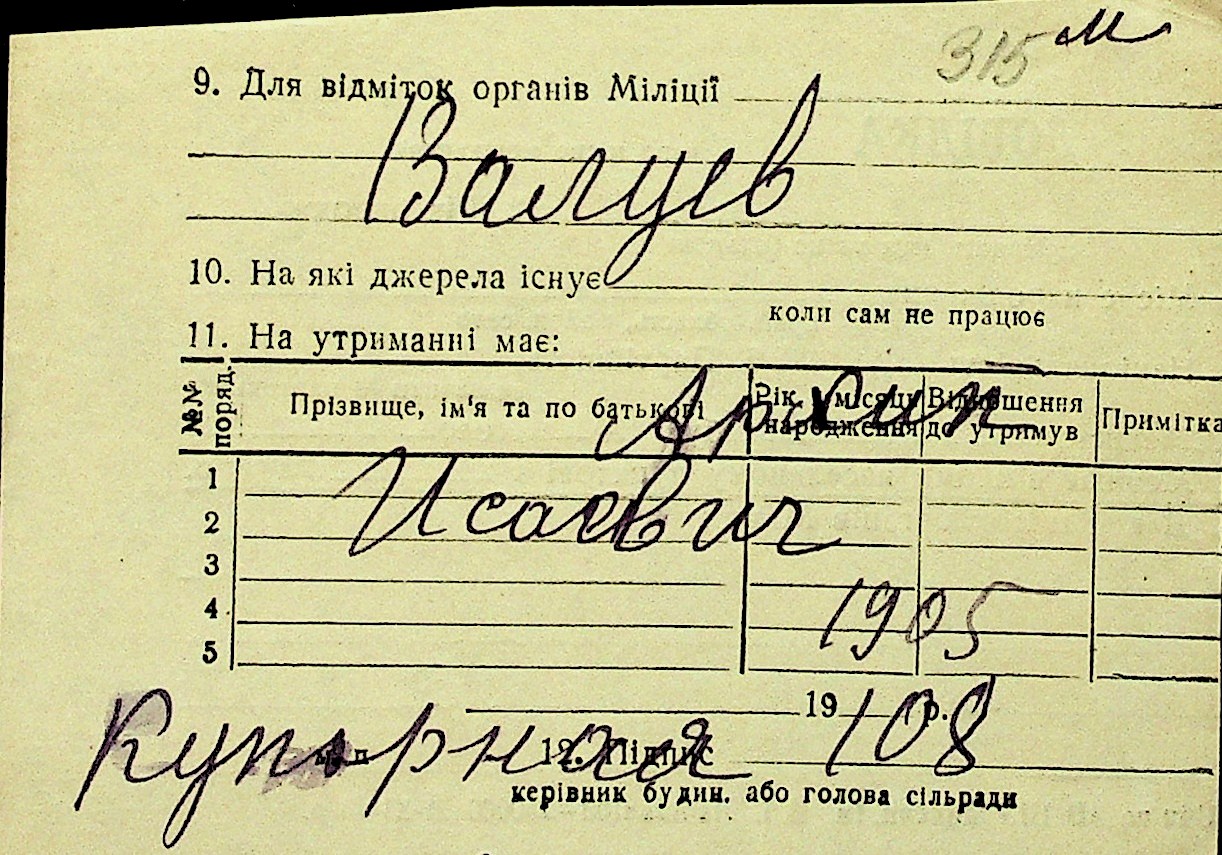 315 м
9. Для відміток органів Міліції
Валуев
10. На які джерела існує
коли сам не працює
11. На утриманні має:
№№ поряд. Прізвище, ім'я та по батькові Рік, місяць народження Відношення до утримув Примітка
Архип
1
Исаевич
2
3
4
1905
5
19 р.
Купорная 108
м. п. 12. Підпис
керівник будин. або голова сільради